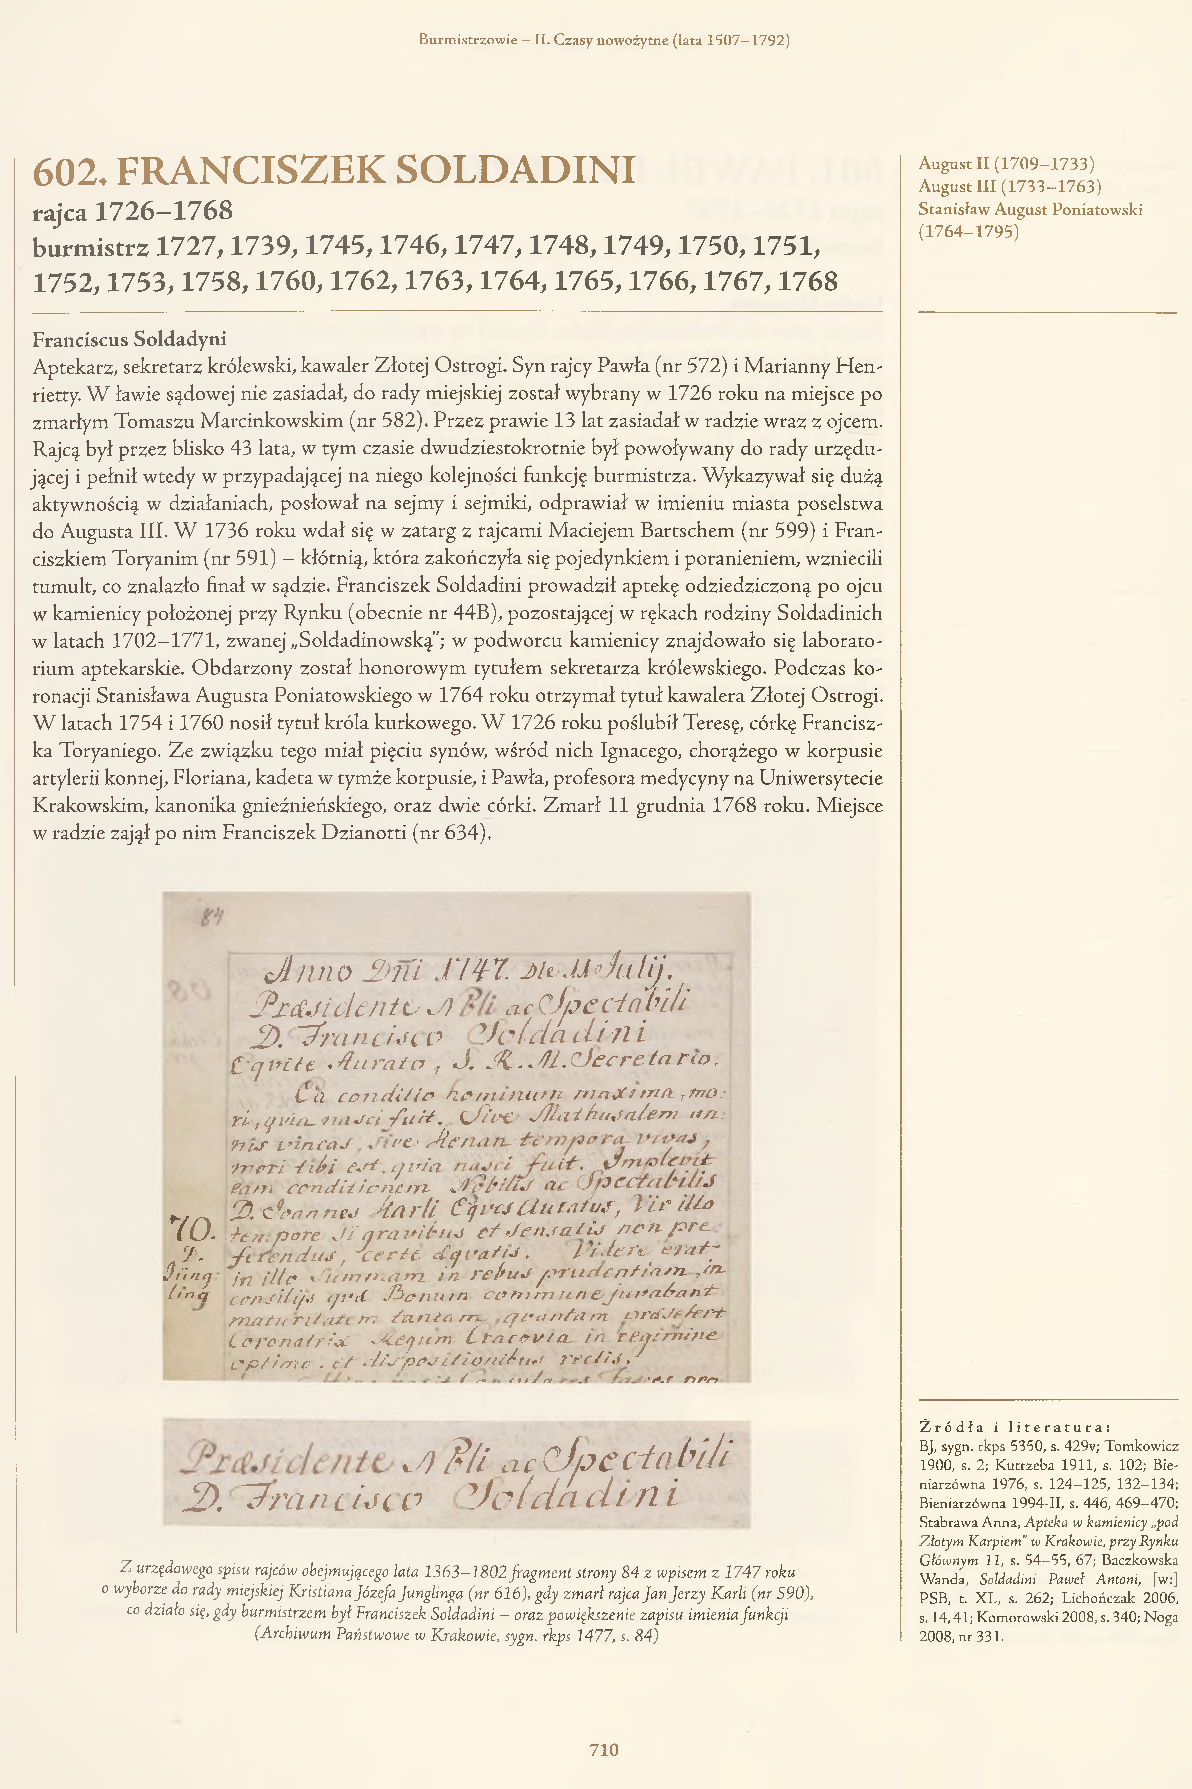 Burmistrzowie – II. Czasy nowożytne (lata 1507–1792)
602. FRANCISZEK SOLDADINI
rajca 1726–1768
burmistrz 1727, 1739, 1745, 1746, 1747, 1748, 1749, 1750, 1751,
1752, 1753, 1758, 1760, 1762, 1763, 1764, 1765, 1766, 1767, 1768
August II (1709–1733)
August III (1733–1763)
Stanisław August Poniatowski
(1764–1795)
Franciscus Soldadyni
Aptekarz, sekretarz królewski, kawaler Złotej Ostrogi. Syn rajcy Pawła (nr 572) i Marianny Hen-
rietty. W ławie sądowej nie zasiadał, do rady miejskiej został wybrany w 1726 roku na miejsce po
zmarłym Tomaszu Marcinkowskim (nr 582). Przez prawie 13 lat zasiadał w radzie wraz z ojcem.
Rajcą był przez blisko 43 lata, w tym czasie dwudziestokrotnie był powoływany do rady urzędu-
jącej i pełnił wtedy w przypadającej na niego kolejności funkcję burmistrza. Wykazywał się dużą
aktywnością w działaniach, posłował na sejmy i sejmiki, odprawiał w imieniu miasta poselstwa
do Augusta III. W 1736 roku wdał się w zatarg z rajcami Maciejem Bartschem (nr 599) i Fran-
ciszkiem Toryanim (nr 591) – kłótnią, która zakończyła się pojedynkiem i poranieniem, wzniecili
tumult, co znalazło finał w sądzie. Franciszek Soldadini prowadził aptekę odziedziczoną po ojcu
w kamienicy położonej przy Rynku (obecnie nr 44B), pozostającej w rękach rodziny Soldadinich
w latach 1702–1771, zwanej „Soldadinowską”; w podworcu kamienicy znajdowało się laborato-
rium aptekarskie. Obdarzony został honorowym tytułem sekretarza królewskiego. Podczas ko-
ronacji Stanisława Augusta Poniatowskiego w 1764 roku otrzymał tytuł kawalera Złotej Ostrogi.
W latach 1754 i 1760 nosił tytuł króla kurkowego. W 1726 roku poślubił Teresę, córkę Francisz-
ka Toryaniego. Ze związku tego miał pięciu synów, wśród nich Ignacego, chorążego w korpusie
artylerii konnej, Floriana, kadeta w tymże korpusie, i Pawła, profesora medycyny na Uniwersytecie
Krakowskim, kanonika gnieźnieńskiego, oraz dwie córki. Zmarł 11 grudnia 1768 roku. Miejsce
w radzie zajął po nim Franciszek Dzianotti (nr 634).
84
Anno Dñi 1747. Die 11 Julij.
Præsidente N Bli ac Spectabili
D. Francisco Soldadini
Equite Aurato, S. R. M. Secretario.
Ea conditio hominum maxima, mo-
ri, quia nasci fuit. Sive Mathusalem an-
nis vincas, sive Aenan tempora vivas,
mori tibi est, quia nasci fuit. Implevit
eam conditionem Nobilis ac Spectabilis
D. Joannes Karli Eques Auratus, Vir illo
70. tempore si gravibus et sensatis non pre-
D. ferendus, certe æquatis. Videre erat
Jüng- in illo summam in rebus prudentiam, in
ling consilijs quæ Bonum commune jurabant
maturitatem tantam, quantam præsefert
Coronatrix Regum Cracovia in regimine
optimo, et dispositionibus rectis.
Præsidente N Bli ac Spectabili
D. Francisco Soldadini
Z urzędowego spisu rajców obejmującego lata 1363–1802 fragment strony 84 z wpisem z 1747 roku
o wyborze do rady miejskiej Kristiana Józefa Junglinga (nr 616), gdy zmarł rajca Jan Jerzy Karli (nr 590),
co działo się, gdy burmistrzem był Franciszek Soldadini – oraz powiększenie zapisu imienia funkcji
(Archiwum Państwowe w Krakowie, sygn. rkps 1477, s. 84)
Źródła i literatura:
BJ, sygn. rkps 5350, s. 429v; Tomkowicz
1900, s. 2; Kutrzeba 1911, s. 102; Bie-
niarzówna 1976, s. 124–125, 132–134;
Bieniarzówna 1994-II, s. 446, 469–470;
Stabrawa Anna, Apteka w kamienicy „pod
Złotym Karpiem” w Krakowie, przy Rynku
Głównym 11, s. 54–55, 67; Baczkowska
Wanda, Soldadini Paweł Antoni, [w:]
PSB, t. XL, s. 262; Lichończak 2006,
s. 14, 41; Komorowski 2008, s. 340; Noga
2008, nr 331.
710